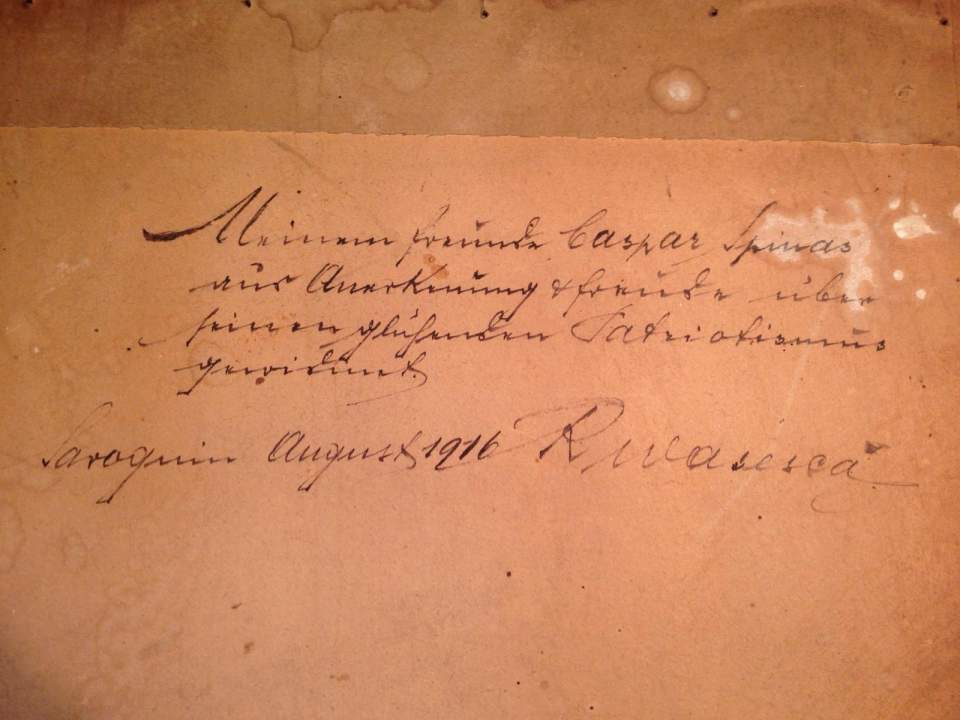 Meinem Freunde Caspar Spinas
aus Anerkennung & Freude über
seinen glühenden Patriotismus
gewidmet.
August 1916